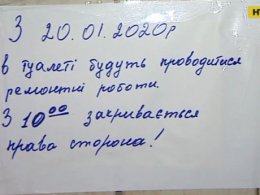 З 20.01.2020р
в туалеті будуть проводитися
ремонтні роботи.
З 10⁰⁰ закривається
права сторона!